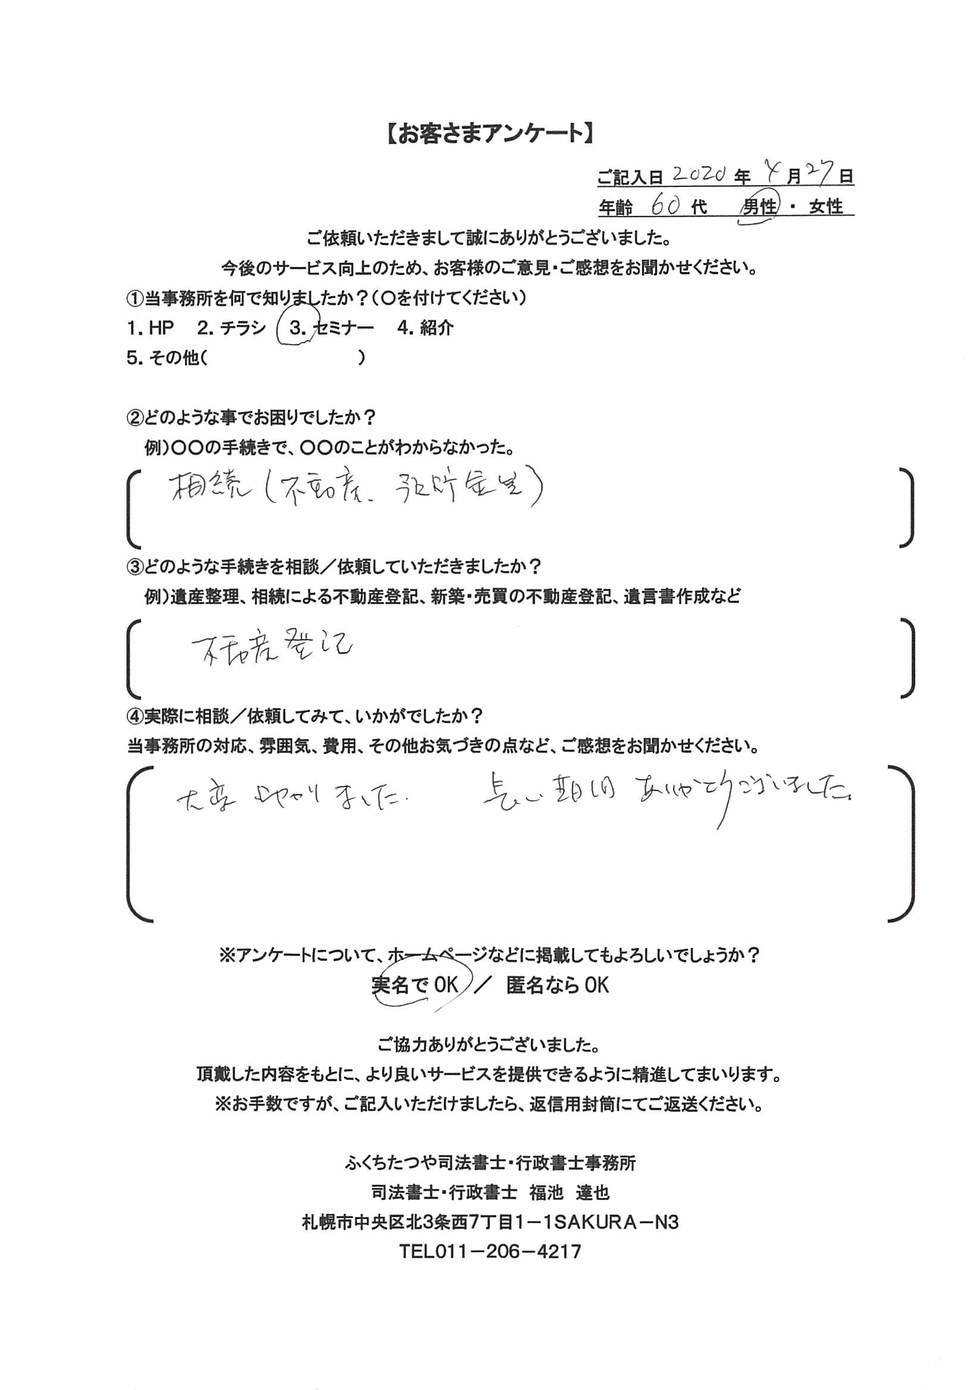 【お客さまアンケート】
ご記入日 2020 年 4 月 27 日
年齢 60 代 男性 ・ 女性
ご依頼いただきまして誠にありがとうございました。
今後のサービス向上のため、お客様のご意見・ご感想をお聞かせください。
①当事務所を何で知りましたか？（〇を付けてください）
1．HP 2．チラシ 3．セミナー 4．紹介
5．その他（ ）
②どのような事でお困りでしたか？
例）〇〇の手続きで、〇〇のことがわからなかった。
相続（不動産、預貯金等）
③どのような手続きを相談／依頼していただきましたか？
例）遺産整理、相続による不動産登記、新築・売買の不動産登記、遺言書作成など
不動産登記
④実際に相談／依頼してみて、いかがでしたか？
当事務所の対応、雰囲気、費用、その他お気づきの点など、ご感想をお聞かせください。
大変 ました． 長い期間 ありがとうございました。
※アンケートについて、ホームページなどに掲載してもよろしいでしょうか？
実名でOK ／ 匿名なら OK
ご協力ありがとうございました。
頂戴した内容をもとに、より良いサービスを提供できるように精進してまいります。
※お手数ですが、ご記入いただけましたら、返信用封筒にてご返送ください。
ふくちたつや司法書士・行政書士事務所
司法書士・行政書士 福池 達也
札幌市中央区北3条西7丁目1－1SAKURA－N3
TEL011－206－4217